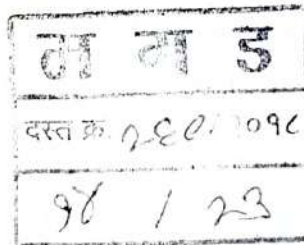 म म ड
दस्त क्र. २०१८
१४ / २३